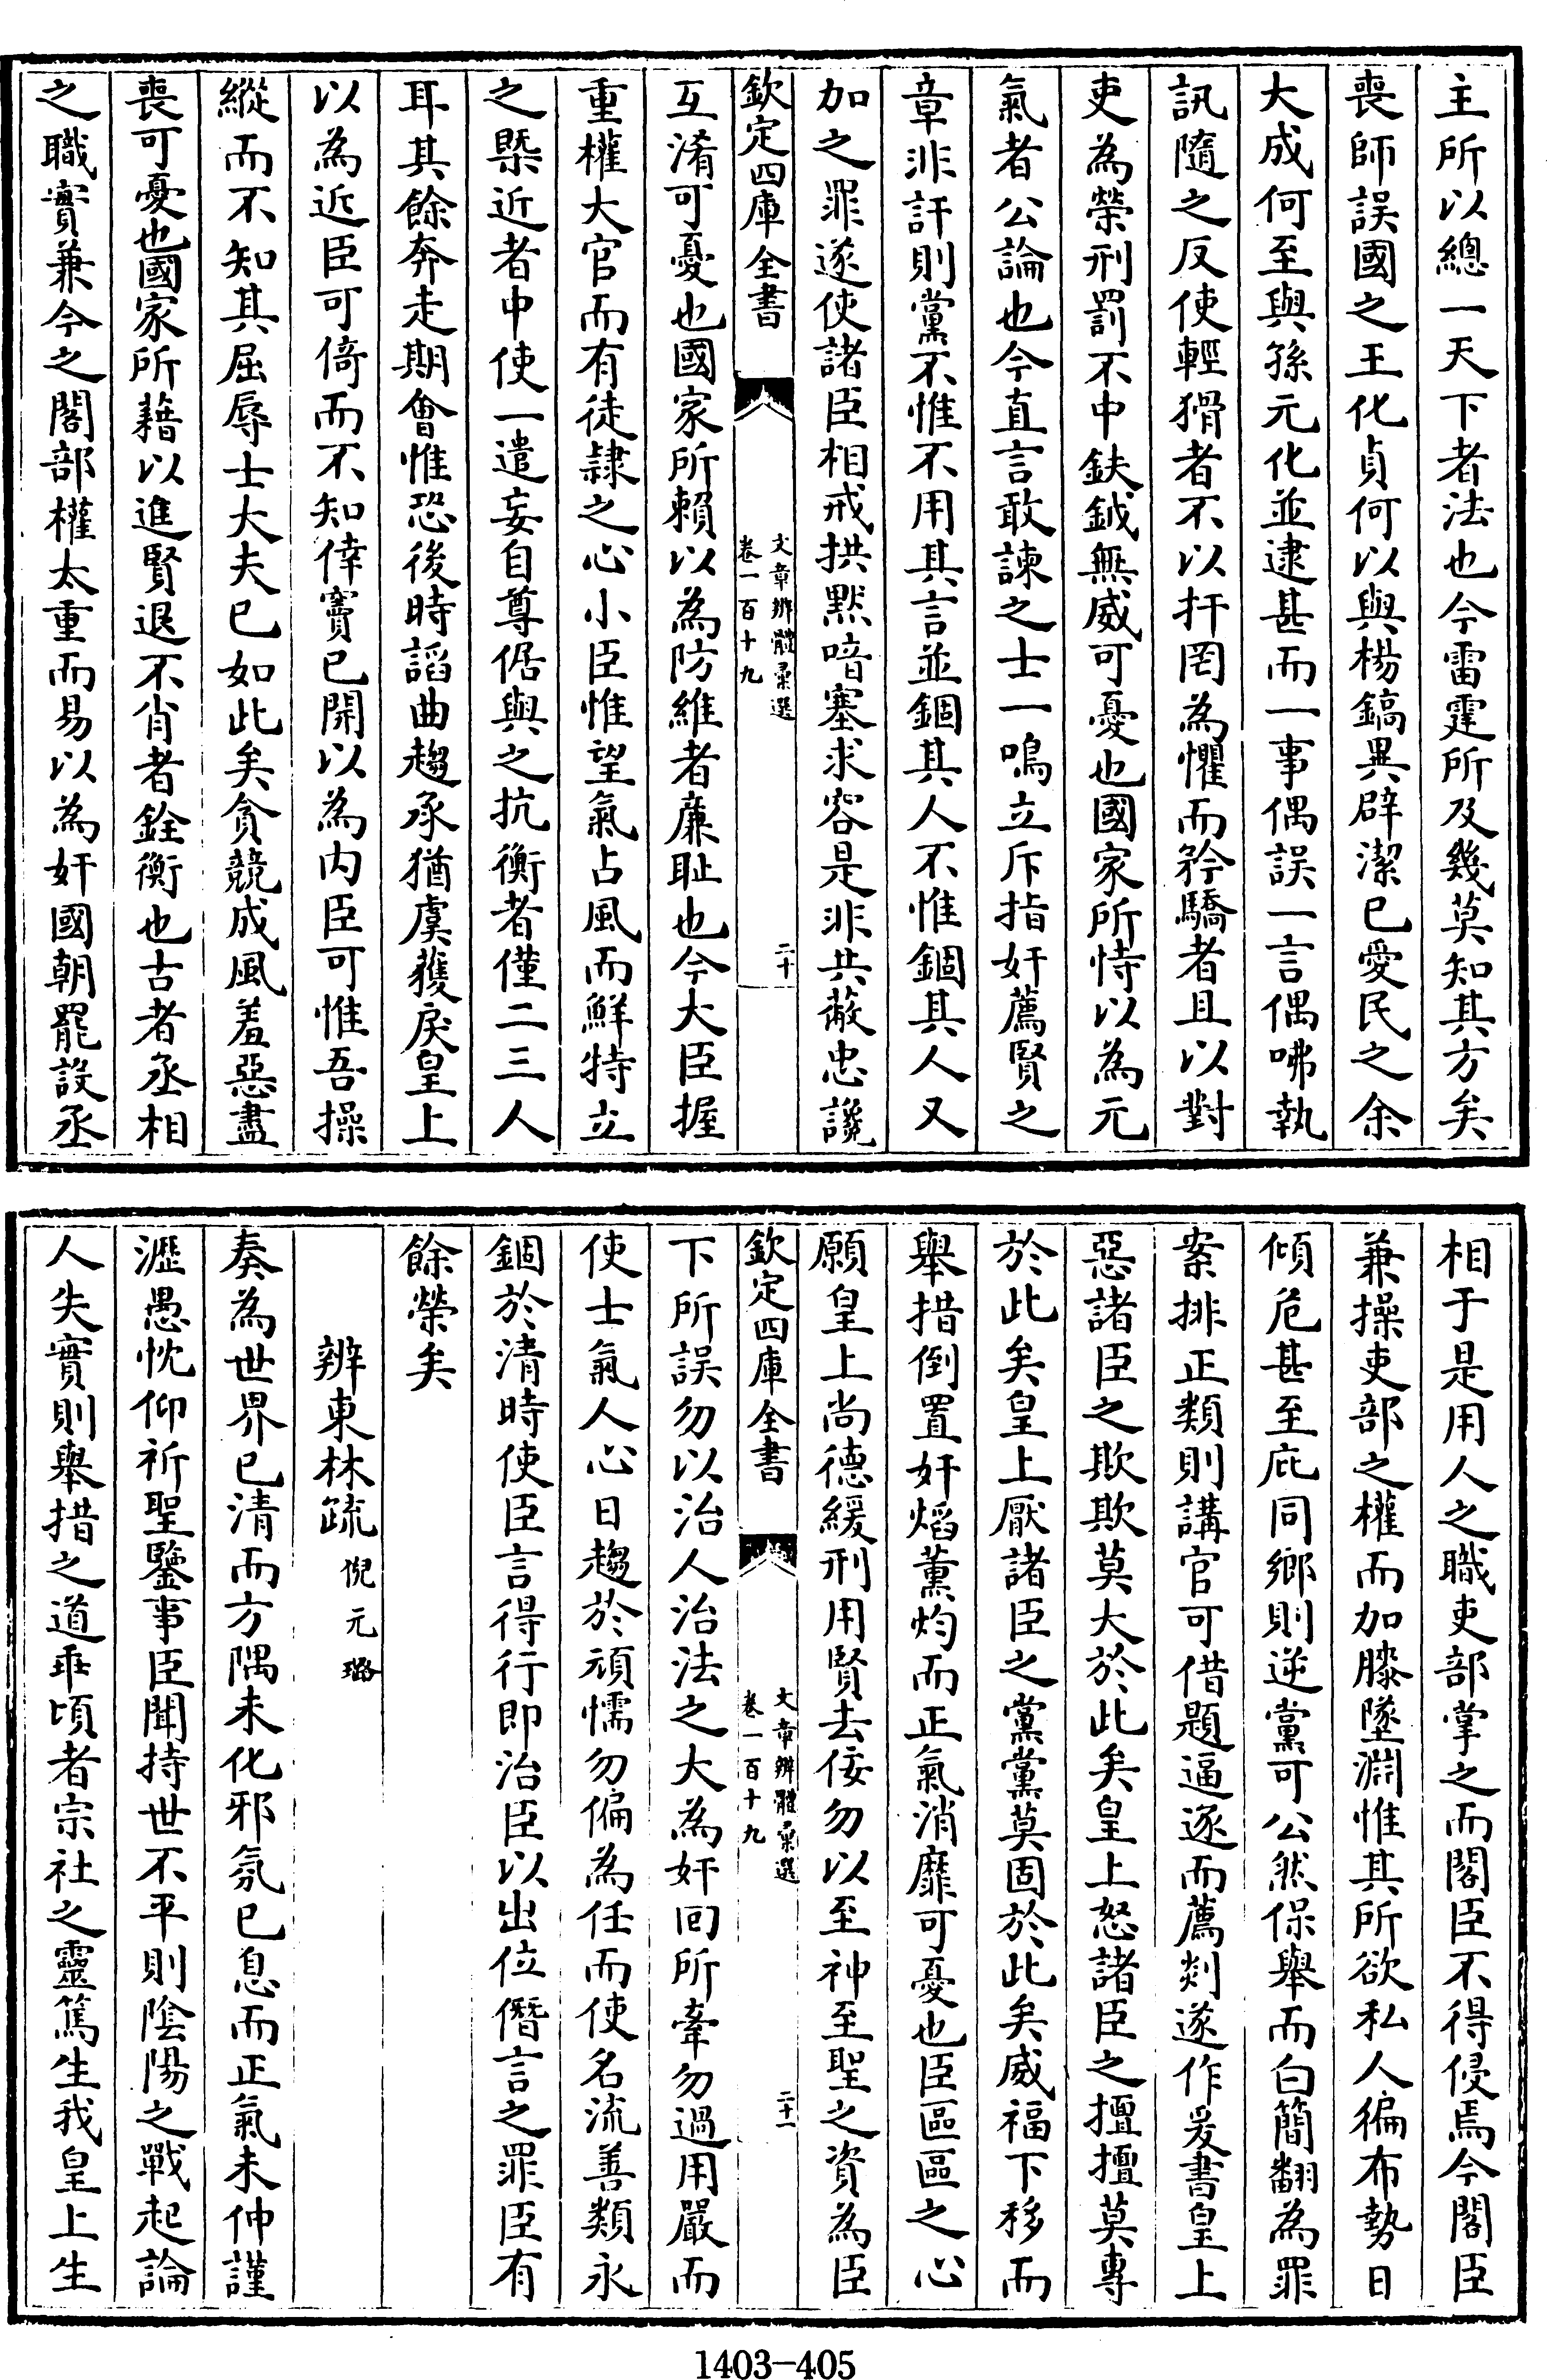 主所以總一天下者法也今雷霆所及幾莫知其方矣
喪師誤國之王化貞何以與楊鎬異辟潔已愛民之余
大成何至與孫元化並逮甚而一事偶誤一言偶咈執
訊隨之反使輕猾者不以扞罔為懼而矜驕者且以對
吏為榮刑罰不中鈇鉞無威可憂也國家所恃以為元
氣者公論也今直言敢諫之士一鳴立斥指奸薦賢之
章非訐則黨不惟不用其言並錮其人不惟錮其人又
加之罪遂使諸臣相戒拱默喑塞求容是非共蔽忠讒
欽定四庫全書
文章辨體彙選
卷一百十九
二十
互淆可憂也國家所賴以為防維者廉耻也今大臣握
重權大官而有徒隷之心小臣惟望氣占風而鮮特立
之槩近者中使一遣妄自尊倨與之抗衡者僅二三人
耳其餘奔走期會惟恐後時謟曲趨承猶虞獲戾皇上
以為近臣可倚而不知倖竇已開以為内臣可惟吾操
縱而不知其屈辱士大夫已如此矣貪競成風羞惡盡
喪可憂也國家所藉以進賢退不肖者銓衡也古者丞相
之職實兼今之閣部權太重而易以為奸國朝罷設丞
相于是用人之職吏部掌之而閣臣不得侵焉今閣臣
兼操吏部之權而加膝墜淵惟其所欲私人徧布勢日
傾危甚至庇同鄉則逆黨可公然保舉而白簡翻為罪
案排正類則講官可借題逼逐而薦剡遂作爰書皇上
惡諸臣之欺欺莫大於此矣皇上怒諸臣之擅擅莫專
於此矣皇上厭諸臣之黨黨莫固於此矣威福下移而
舉措倒置奸焰薰灼而正氣消靡可憂也臣區區之心
願皇上尚德緩刑用賢去佞勿以至神至聖之資為臣
欽定四庫全書
文章辨體彙選
卷一百十九
二十一
下所誤勿以治人治法之大為奸回所牽勿過用嚴而
使士氣人心日趨於頑懦勿偏為任而使名流善類永
錮於清時使臣言得行即治臣以出位僭言之罪臣有
餘榮矣
辨東林疏 倪元璐
奏為世界已清而方隅未化邪氛已息而正氣未伸謹
瀝愚忱仰祈聖鑒事臣聞持世不平則陰陽之戰起論
人失實則舉措之道乖頃者宗社之靈篤生我皇上生
1403-405